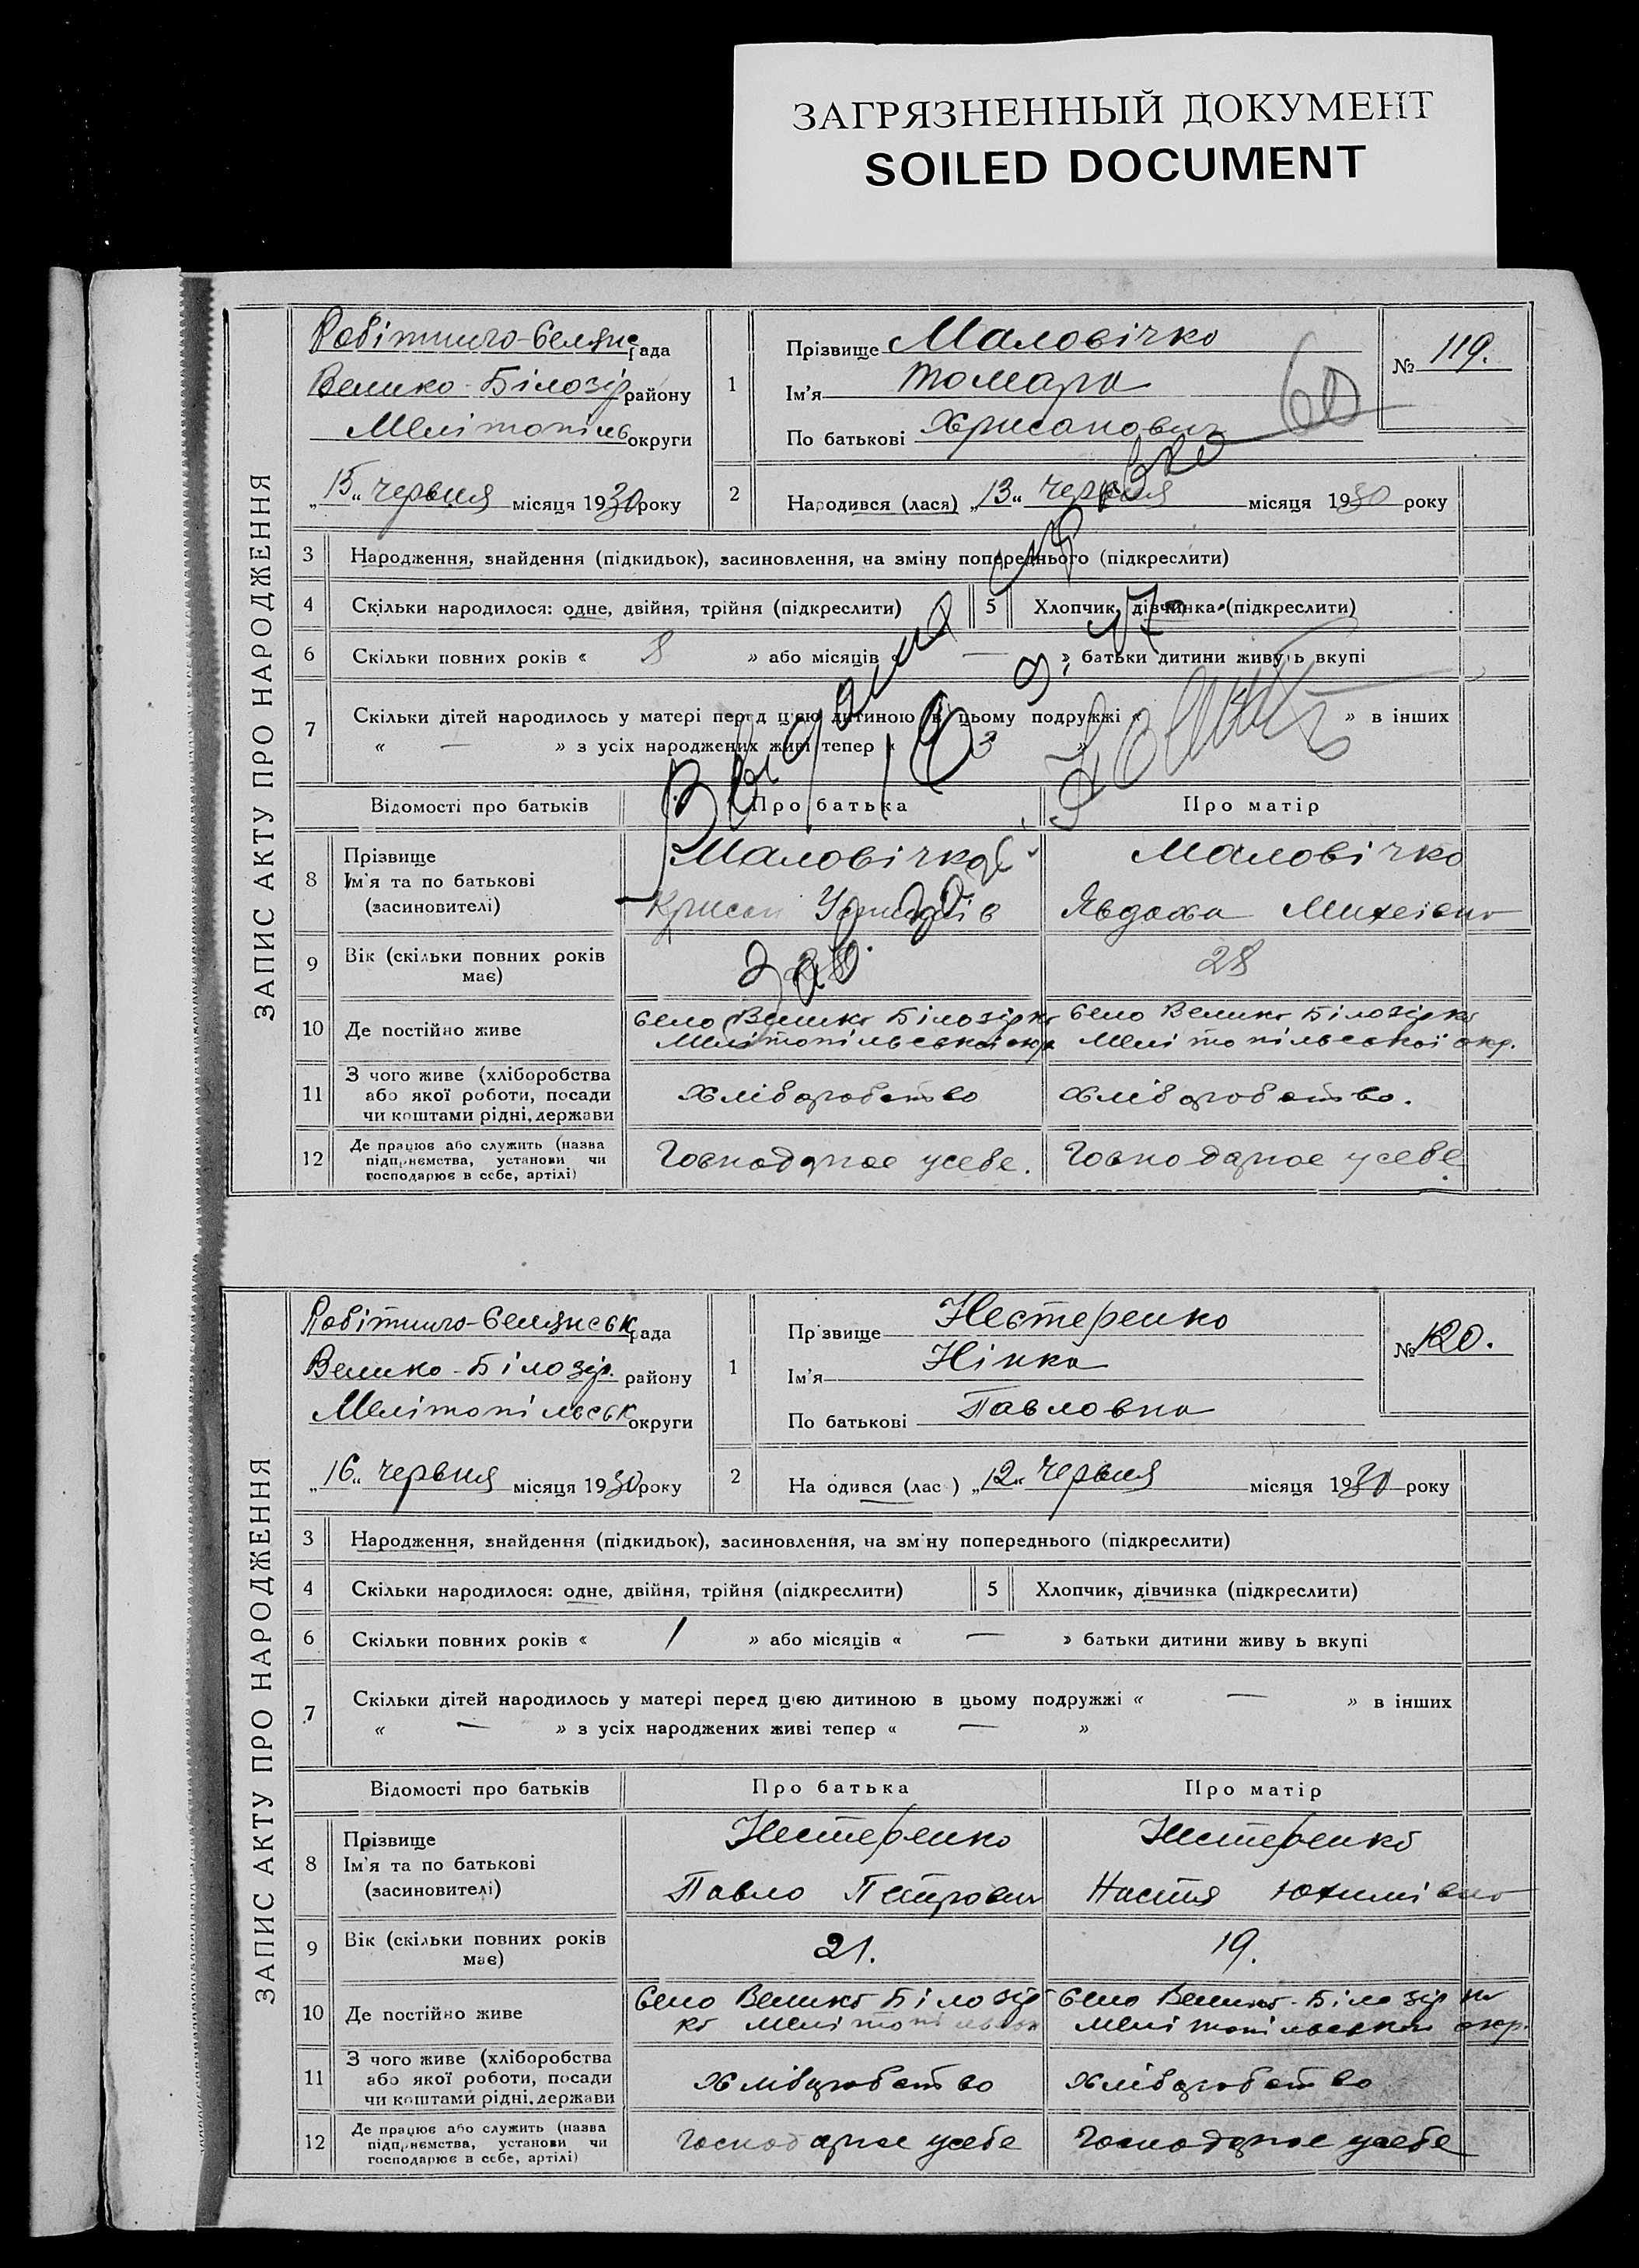 ЗАГРЯЗНЕННЫЙ ДОКУМЕНТ
SOILED DOCUMENT
ЗАПИС АКТУ ПРО НАРОДЖЕННЯ
Робітничо-Селянс рада
Велико-Білозір району
Мелітопільс округи
„15„ червня місяця 1930 року
1
Прізвище Маловічко
Ім'я Томара
По батькові Хрисанович
№ 119.
60
2
Народився (лася) „13„ червня місяця 1930 року
3 Народження, знайдення (підкидьок), засиновлення, на зміну попереднього (підкреслити)
4 Скільки народилося: одне, двійня, трійня (підкреслити) 5 Хлопчик, дівчинка (підкреслити)
6 Скільки повних років « 8 » або місяців « — » батьки дитини живуть вкупі
7 Скільки дітей народилось у матері перед цією дитиною в цьому подружжі « » в інших
« — » з усіх народжених живі тепер « 3 »
Відомості про батьків Про батька Про матір
8 Прізвище
Ім'я та по батькові
(засиновителі)
Маловічко
Крисан
Маловічко
Явдоха Михеівно
9 Вік (скільки повних років має) 28
10 Де постійно живе
Село Велико Білозірко
Мелітопільськоі окр
Село Велико Білозірко
Мелітопільської окр.
11 З чого живе (хліборобства
або якої роботи, посади
чи коштами рідні, держави
хліборобство хліборобство.
12 Де працює або служить (назва
підприємства, установи чи
господарює в себе, артілі)
Господарює усебе. Господарює усебе
ЗАПИС АКТУ ПРО НАРОДЖЕННЯ
Робітничо-Селянськ рада
Велико-Білозір. району
Мелітопільськ округи
„16„ червня місяця 1930 року
1
Пр звище Нестеренко
Ім'я Нінка
По батькові Павловна
№ 120.
2
На одився (лас ) „12„ червня місяця 1930 року
3 Народження, знайдення (підкидьок), засиновлення, на зм ну попереднього (підкреслити)
4 Скільки народилося: одне, двійня, трійня (підкреслити) 5 Хлопчик, дівчинка (підкреслити)
6 Скільки повних років « 1 » або місяців « — » батьки дитини живу ь вкупі
7 Скільки дітей народилось у матері перед цією дитиною в цьому подружжі « — » в інших
« — » з усіх народжених живі тепер « — »
Відомості про батьків Про батька Про матір
8 Прізвище
Ім'я та по батькові
(засиновителі)
Нестеренко
Павло Петрович
Нестеренко
Настя Юхимівно
9 Вік (скільки повних років має) 21. 19.
10 Де постійно живе
Село Велико Білозір
ко Мелітопільськ
Село Велико-Білозірко
Мелітопільськоі окр.
11 З чого живе (хліборобства
або якої роботи, посади
чи коштами рідні, держави
хліборобство хліборобство
12 Де працює або служить (назва
підприємства, установи чи
господарює в себе, артілі)
Господарює усебе Господарює усебе